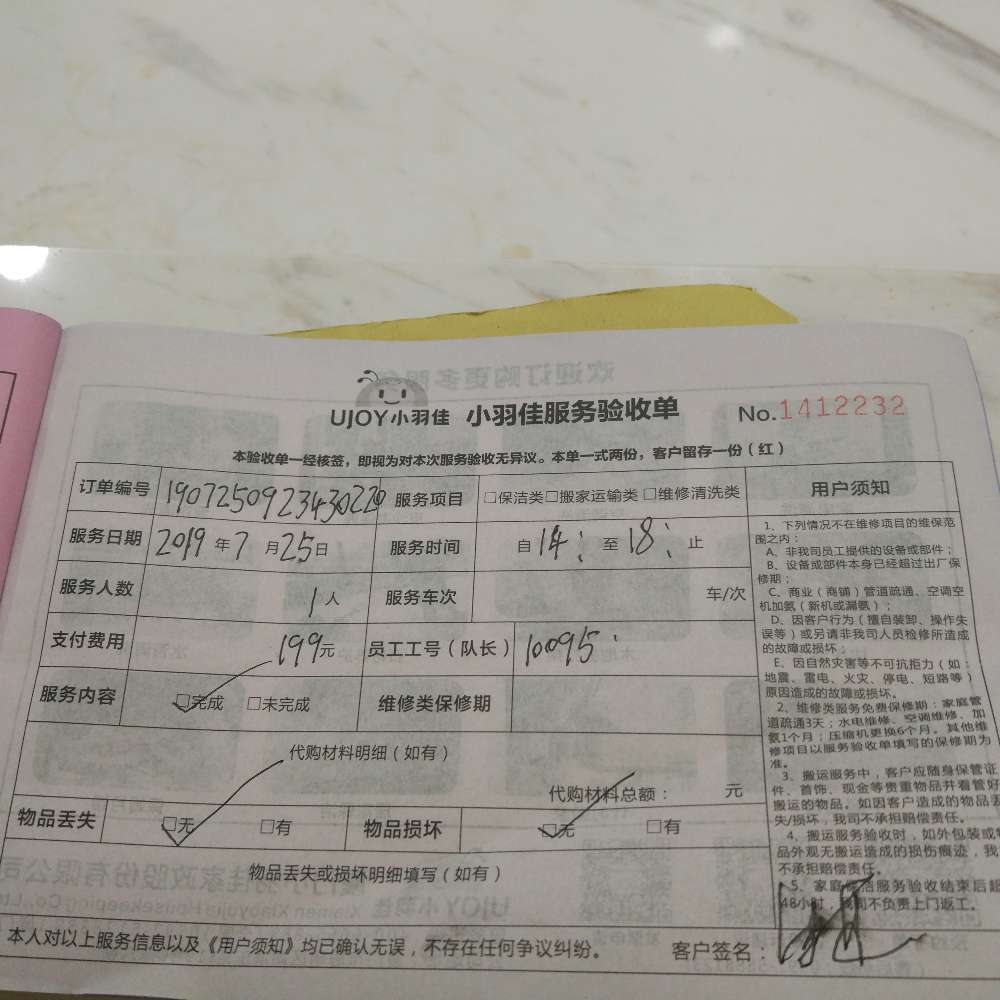 UJOY小羽佳 小羽佳服务验收单 No.1412232
本验收单一经核签，即视为对本次服务验收无异议。本单一式两份，客户留存一份（红）
订单编号 19072509234430220 服务项目 □保洁类□搬家运输类□维修清洗类
服务日期 2019年7月25日 服务时间 自14：至18：止
服务人数 1人 服务车次 车/次
支付费用 199元 员工工号（队长） 10095
服务内容 □完成 □未完成 维修类保修期
代购材料明细（如有）
代购材料总额： 元
物品丢失 □无 □有 物品损坏 □无 □有
物品丢失或损坏明细填写（如有）
本人对以上服务信息以及《用户须知》均已确认无误，不存在任何争议纠纷。 客户签名：
用户须知
1、下列情况不在维修项目的维保范
围之内：
A、非我司员工提供的设备或部件；
B、设备或部件本身已经超过出厂保
修期；
C、商业（商铺）管道疏通、空调空
机加氨（新机或漏氨）；
D、因客户行为（擅自装卸、操作失
误等）或另请非我司人员检修所造成
的故障或损坏；
E、因自然灾害等不可抗拒力（如：
地震、雷电、火灾、停电、短路等）
原因造成的故障或损坏。
2、维修类服务免费保修期：家庭管
道疏通3天；水电维修、空调维修、加
氨1个月；压缩机更换6个月。其他维
修项目以服务验收单填写的保修期为
准。
3、搬运服务中，客户应随身保管证
件、首饰、现金等贵重物品并看管好
搬运的物品。如因客户造成的物品丢
失/损坏，我司不承担赔偿责任。
4、搬运服务验收时，如外包装或物
品外观无搬运造成的损伤痕迹，我
不承担赔偿责任。
5、家庭保洁服务验收结束后超
48小时，我司不负责上门返工。